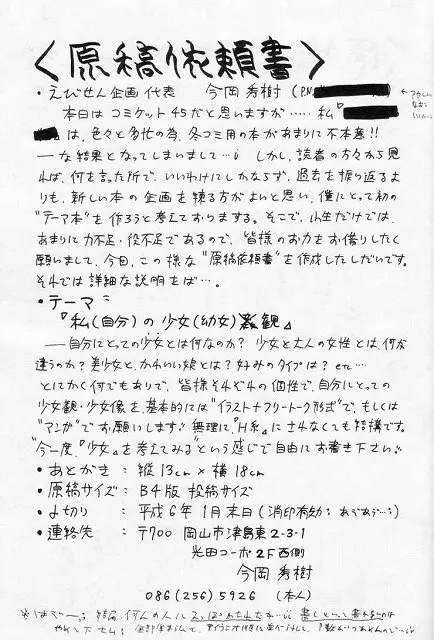 〈原稿依頼書〉
・えびせん企画 代表 今岡 秀樹 (P.N.
本日はコミケット45だと思いますが……私『
は、色々と多忙の為、冬コミ用の本があまりに不本意!!
――な結果となってしまいまして…。しかし、読者の方々から見
れば、何を言った所で、いいわけにしかならず、過去を振り返るよ
りも、新しい本の企画を練る方がよいと思い、僕にとって初の
"テーマ本"を作ろうと考えております。そこで、小生だけでは、
あまりに力不足・役不足であるので、皆様のお力をお借りしたく
願いまして、今回、この様な"原稿依頼書"を作成ししだいです。
それでは詳細な説明をば…。
・テーマ:
『私(自分)の少女(幼女)観』
――自分にとっての少女とは何なのか? 少女と大人の女性とは、何が
違うのか? 美少女と、かわいい娘とは? 好みのタイプは? etc…
とにかく何でもありで、皆様それぞれの個性で、自分にとっての
少女観・少女像を、基本的には"イラスト+フリートーク形式"で、もしくは
"マンガ"でお願いします。無理に『H系』にされなくても結構です。
"今一度、『少女』を考えてみる"という感じで自由にお書き下さい。
・あとがき : 縦13cm × 横18cm
・原稿サイズ : B4版 投稿サイズ
・〆切り : 平成6年1月末日(消印有効:
・連絡先 : 〒700 岡山市津島東2-3-1
光田コーポ2F西側
今岡 秀樹
086(256)5926 (本人)